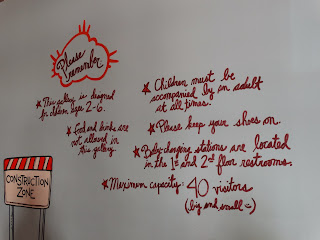 Please
remember
★ This gallery is designed
for children ages 2-6.
★ Food and drinks are
not allowed in
this gallery.
★ Children must be
accompanied by an adult
at all times.
★ Please keep your shoes on.
★ Baby-changing stations are located
in the 1st and 2nd floor restrooms.
★ Maximum capacity: 40 visitors
(big and small)
CONSTRUCTION
ZONE